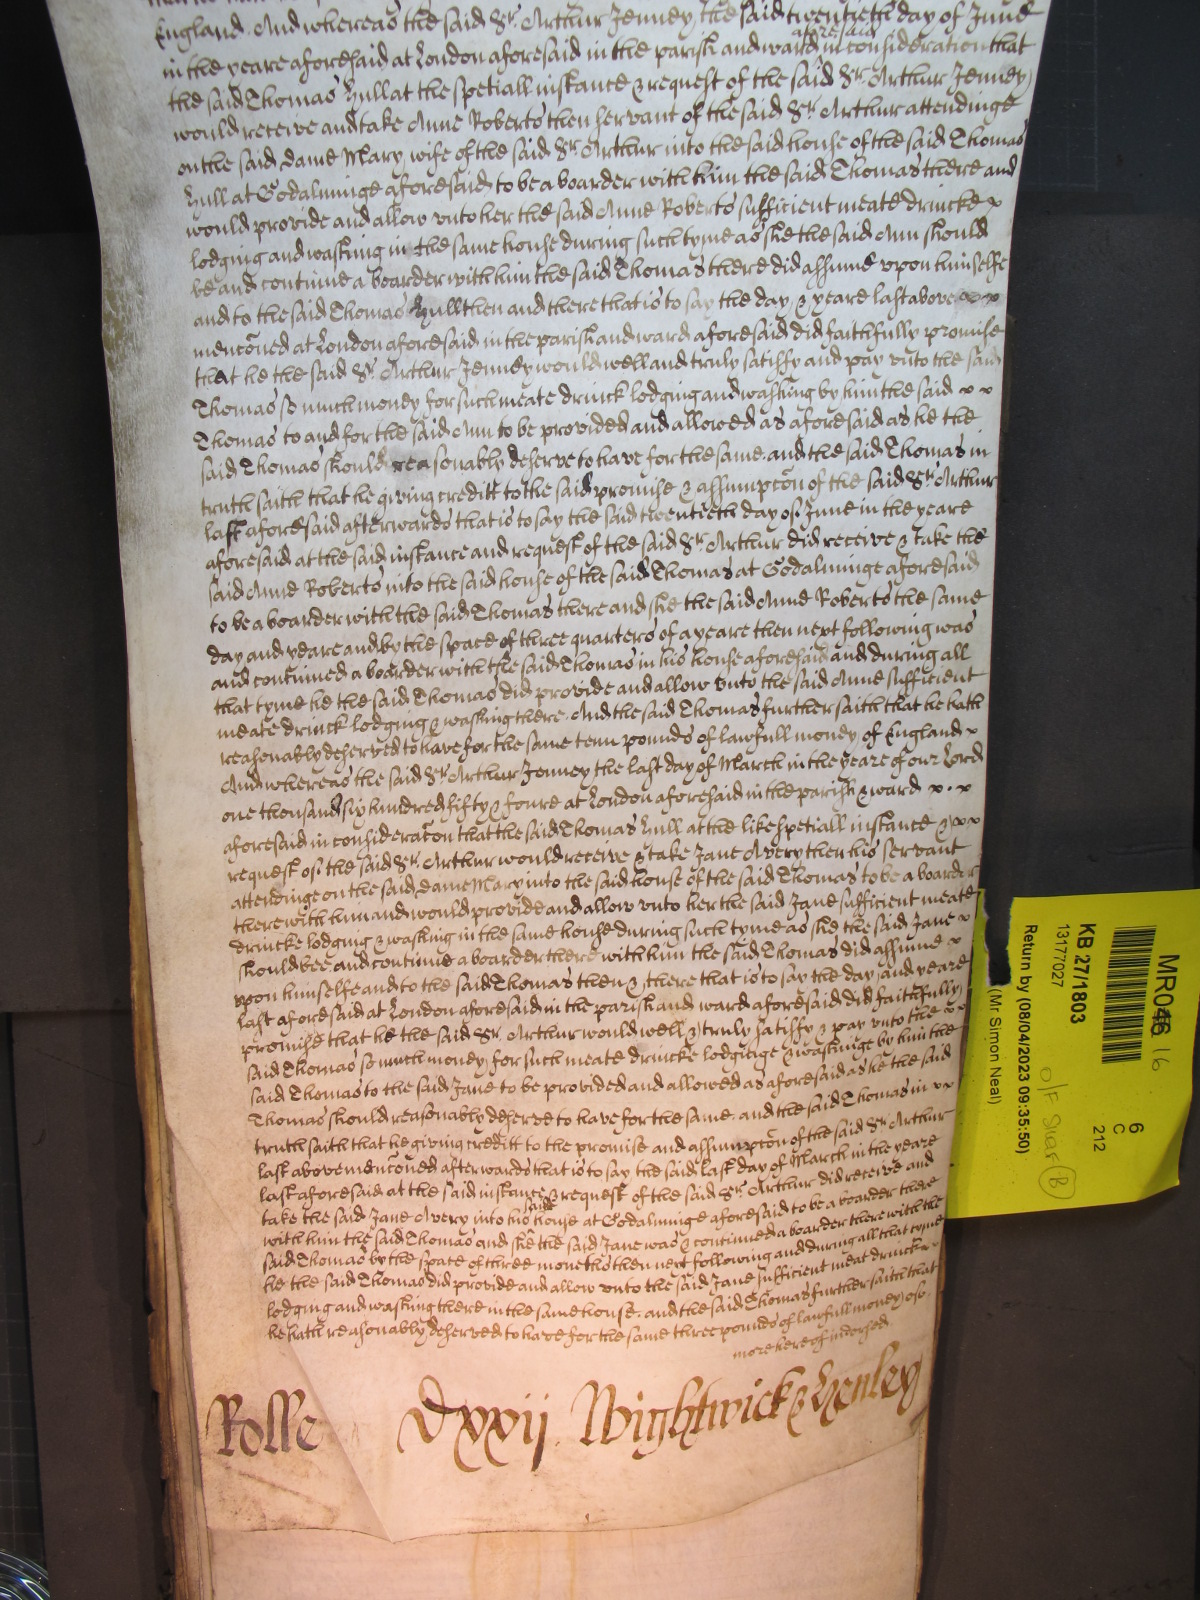 England. And whereas the said Sr. Arthur Jenney the said twentieth day of June
in the yeare aforesaid at London aforesaid in the parish and ward aforesaid in consideration that
the said Thomas Hull at the spetiall instance & request of the said Sr. Arthur Jenney
would receive and take Anne Roberts then servant of the said Sr. Arthur attendinge
on the said dame Mary wife of the said Sr. Arthur into the said house of the said Thomas
Hull at Godalminge aforesaid to be a boarder with him the said Thomas there and
would provide and allow unto her the said Anne Roberts sufficient meate drincke x
lodging and washing in the same house during such tyme as she the said Ann should
be and continue a boarder with him the said Thomas there did assume upon himselfe
and to the said Thomas Hull then and there that is to say the day & yeare last above x x
menc̃oned at London aforesaid in the parish and ward aforesaid did faithfully promise
that he the said Sr. Arthur Jenney would well and truly satisfy and pay unto the said
Thomas so much money for such meate drinck lodging and washing by him the said x x
Thomas to and for the said Ann to be provided and allowed as aforesaid as he the
said Thomas should reasonably deserve to have for the same. and the said Thomas in
truth saith that he giving creditt to the said promise & assumpc̃on of the said Sr. Arthur
last aforesaid afterwards that is to say the said twentieth day of June in the yeare
aforesaid at the said instance and request of the said Sr. Arthur did receive & take the
said Anne Roberts into the said house of the said Thomas at Godalminge aforesaid
to be a boarder with the said Thomas there and she the said Anne Roberts the same
day and yeare and by the space of three quarters of a yeare then next following was
and continued a boarder with the said Thomas in his house aforesaid and during all
that tyme he the said Thomas did provide and allow unto the said Anne sufficient
meate drinck lodging & washing there. And the said Thomas further saith that he hath
reasonably deserved to have for the same tenn pounds of lawfull money of England x
And whereas the said Sr. Arthur Jenney the last day of March in the yeare of our Lord
one thousand six hundred fifty & foure at London aforesaid in the parish & ward x . x
aforesaid in considerac̃on that the said Thomas Hull at the like spetiall instance & x x
request of the said Sr. Arthur would receive & take Jane Avery then his servant
attendinge on the said dame Mary into the said house of the said Thomas to be a boarder
there with him and would provide and allow unto her the said Jane sufficient meate
drincke lodging & washing in the same house during such tyme as she the said Jane x
should bee and continue a boarder there with him the said Thomas did assume x
upon himselfe and to the said Thomas then & there that is to say the day and yeare
last aforesaid at London aforesaid in the parish and ward aforesaid did faithfully
promise that he the said Sr. Arthur would well & truly satisfy & pay unto the x x
said Thomas so much money for such meate drincke lodginge & washinge by him the
said Thomas to the said Jane to be provided and allowed as aforesaid as he the said
Thomas should reasonably deserve to have for the same. and the said Thomas in x x
truth saith that he giving creditt to the promise and assumpc̃on of the said Sr. Arthur
last above menc̃oned afterwards that is to say the said last day of March in the yeare
last aforesaid at the said instance & request of the said Sr. Arthur did receive and
take the said Jane Avery into his said house at Godalminge aforesaid to be a boarder there
with him the said Thomas and she the said Jane was & continued a boarder there with the
said Thomas by the space of three moneths then next following and during all that tyme
he the said Thomas did provide and allow unto the said Jane sufficient meat drinck x x
lodging and washing there in the same house. and the said Thomas further saith that
he hath reasonably deserved to have for the same three pounds of lawfull money
more hereof indorsed.
Rolle Dxxij Wightwick & Henley
MR046 16
6
C
212
KB 27/1803
13177027
O/F Star B
Return by (08/04/2023 09:35:50)
(Mr Simon Neal)